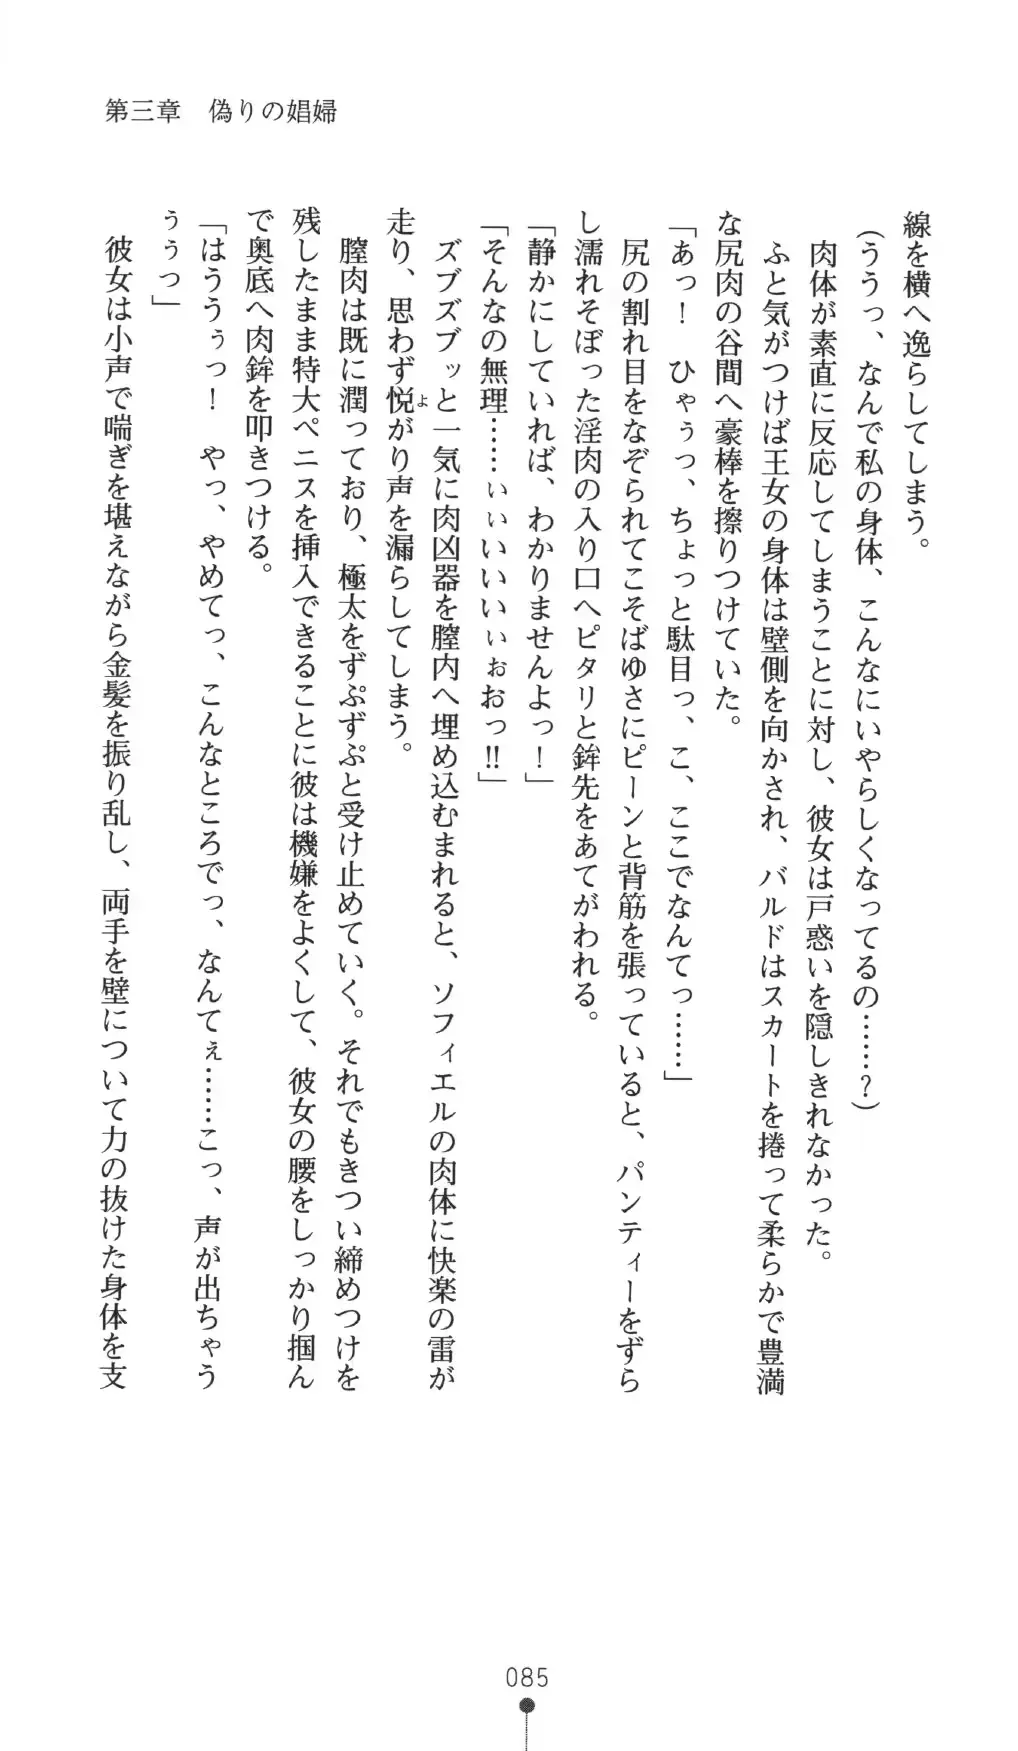 第三章　偽りの娼婦
線を横へ逸らしてしまう。
（ううっ、なんで私の身体、こんなにいやらしくなってるの……？）
肉体が素直に反応してしまうことに対し、彼女は戸惑いを隠しきれなかった。
ふと気がつけば王女の身体は壁側を向かされ、バルドはスカートを捲って柔らかで豊満
な尻肉の谷間へ豪棒を擦りつけていた。
「あっ！　ひゃぅっ、ちょっと駄目っ、こ、ここでなんてっ……」
尻の割れ目をなぞられてこそばゆさにピーンと背筋を張っていると、パンティーをずら
し濡れそぼった淫肉の入り口へピタリと鉾先をあてがわれる。
「静かにしていれば、わかりませんよっ！」
「そんなの無理……ぃぃいいいぃぉおっ!!」
ズブズブッと一気に肉凶器を膣内へ埋め込むまれると、ソフィエルの肉体に快楽の雷が
走り、思わず悦がり声を漏らしてしまう。
よ
膣肉は既に潤っており、極太をずぷずぷと受け止めていく。それでもきつい締めつけを
残したまま特大ペニスを挿入できることに彼は機嫌をよくして、彼女の腰をしっかり掴ん
で奥底へ肉鉾を叩きつける。
「はううぅっ！　やっ、やめてっ、こんなところでっ、なんてぇ……こっ、声が出ちゃう
ぅぅっ」
彼女は小声で喘ぎを堪えながら金髪を振り乱し、両手を壁について力の抜けた身体を支
085